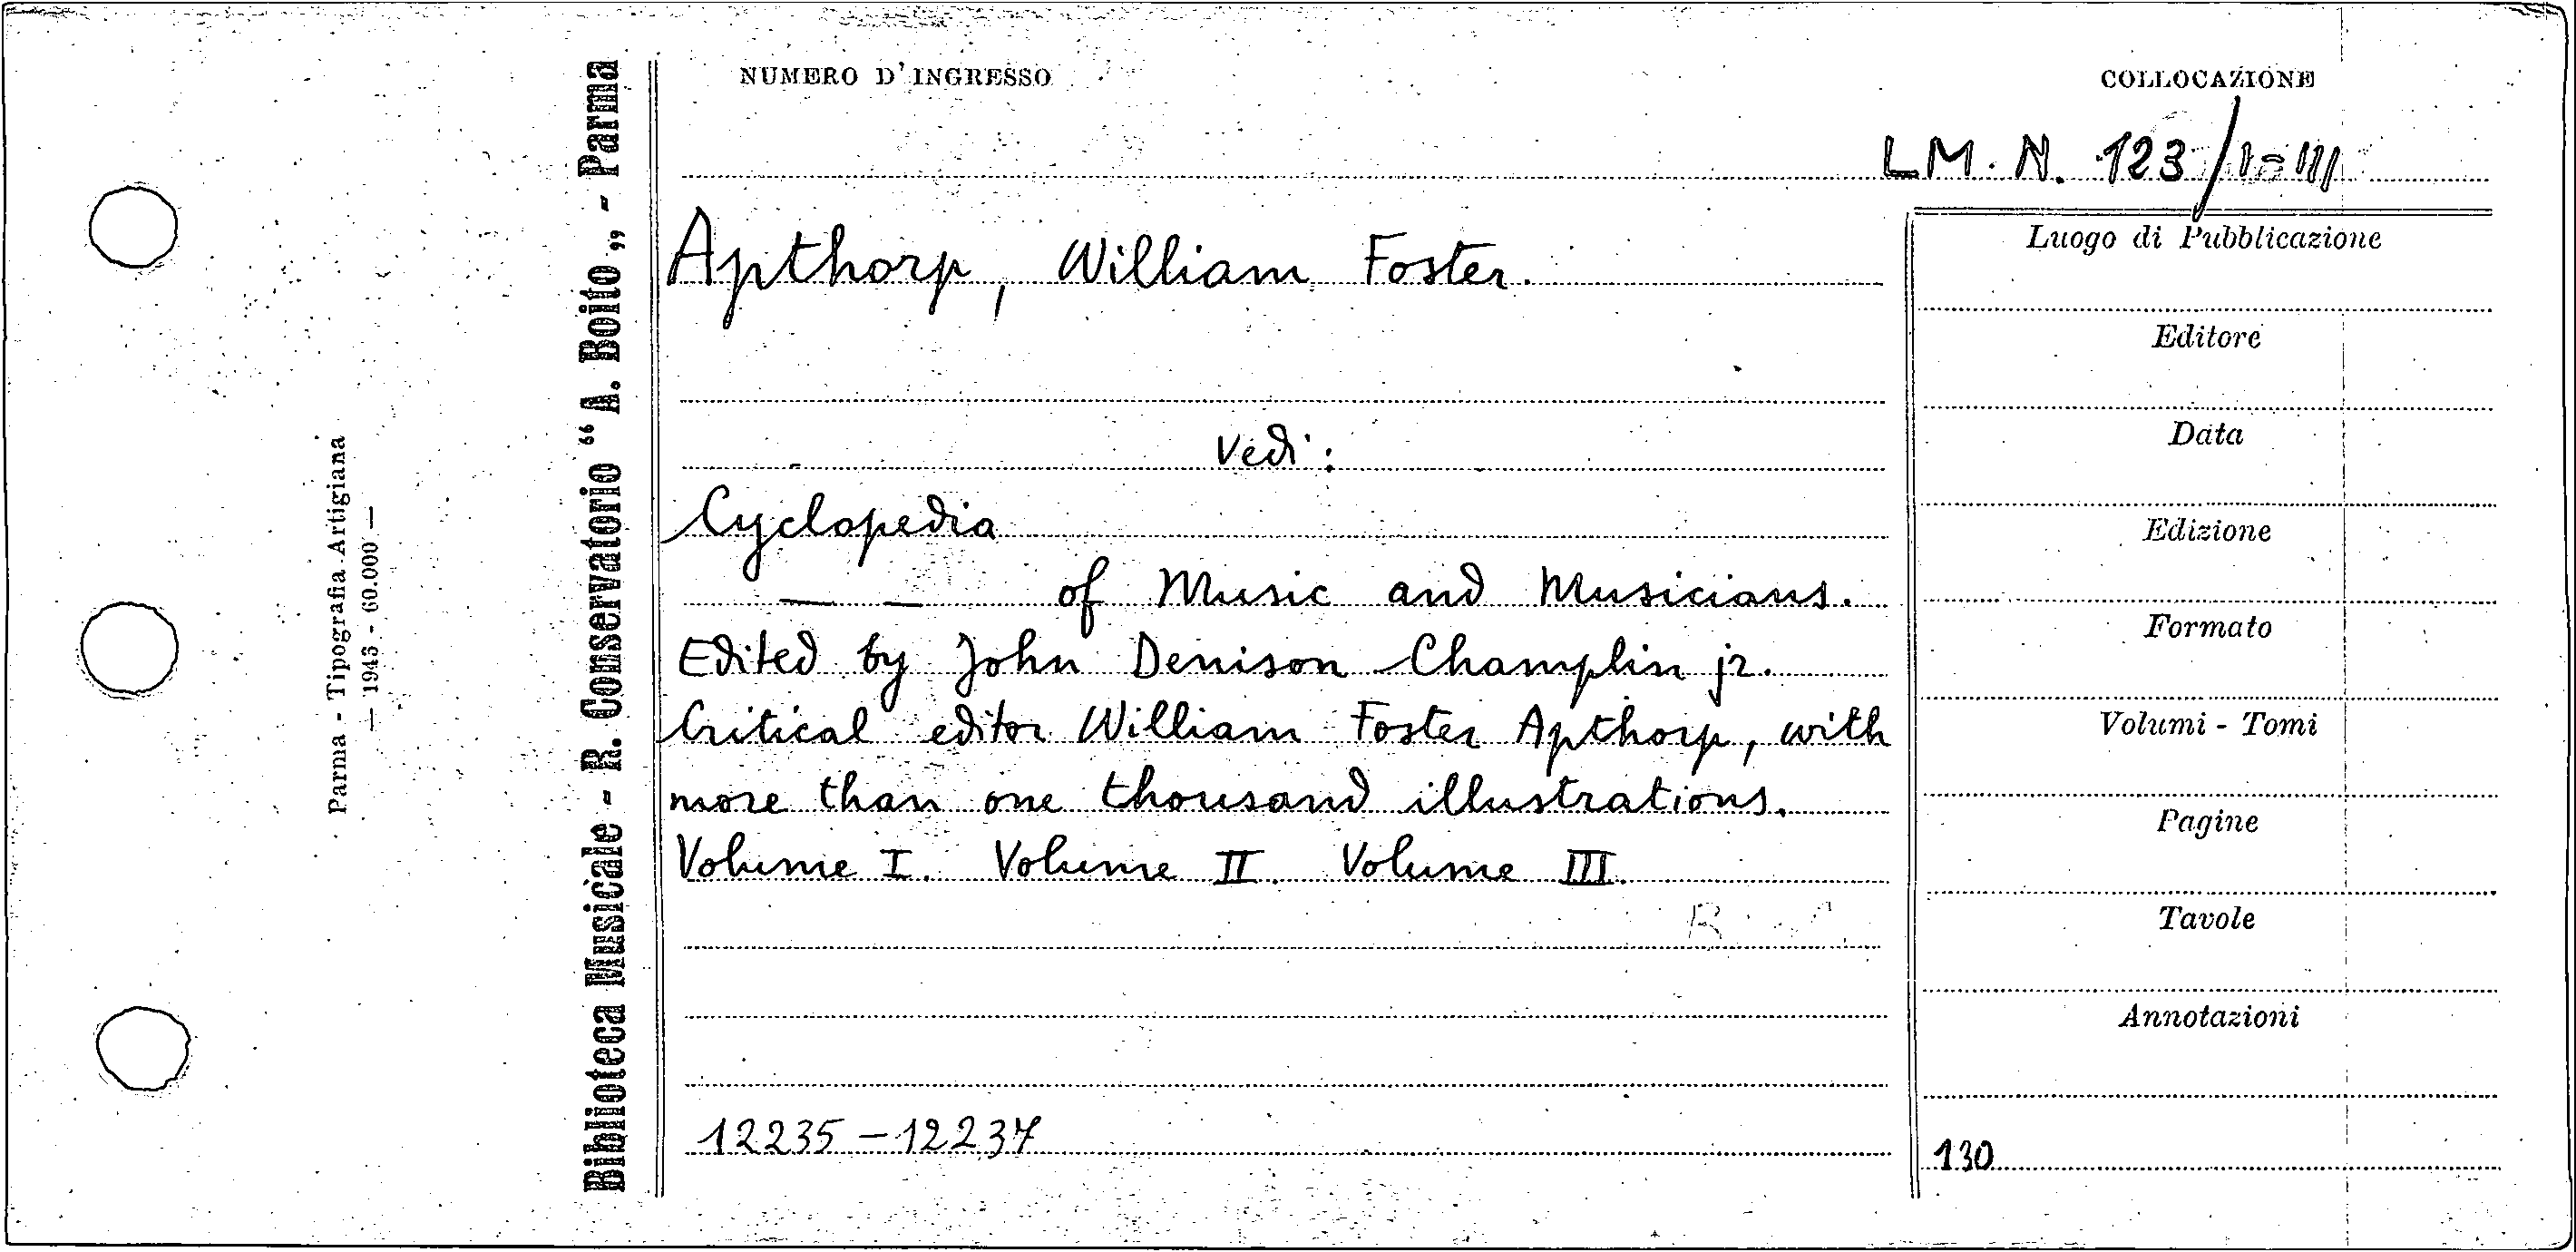 NUMERO D'INGRESSO
COLLOCAZIONE
LM. N. 123/I-III
Apthorp, William Foster.
Vedi:
Cyclopedia
— — of Music and Musicians.
Edited by John Denison Champlin jr.
Critical editor William Foster Apthorp, with
more than one thousand illustrations.
Volume I. Volume II. Volume III.
12235 – 12237
Luogo di Pubblicazione
Editore
Data
Edizione
Formato
Volumi - Tomi
Pagine
Tavole
Annotazioni
130
Biblioteca Musicale - R. Conservatorio “A. Boito„ - Parma
Parma - Tipografia Artigiana
— 1943 - 60.000 —